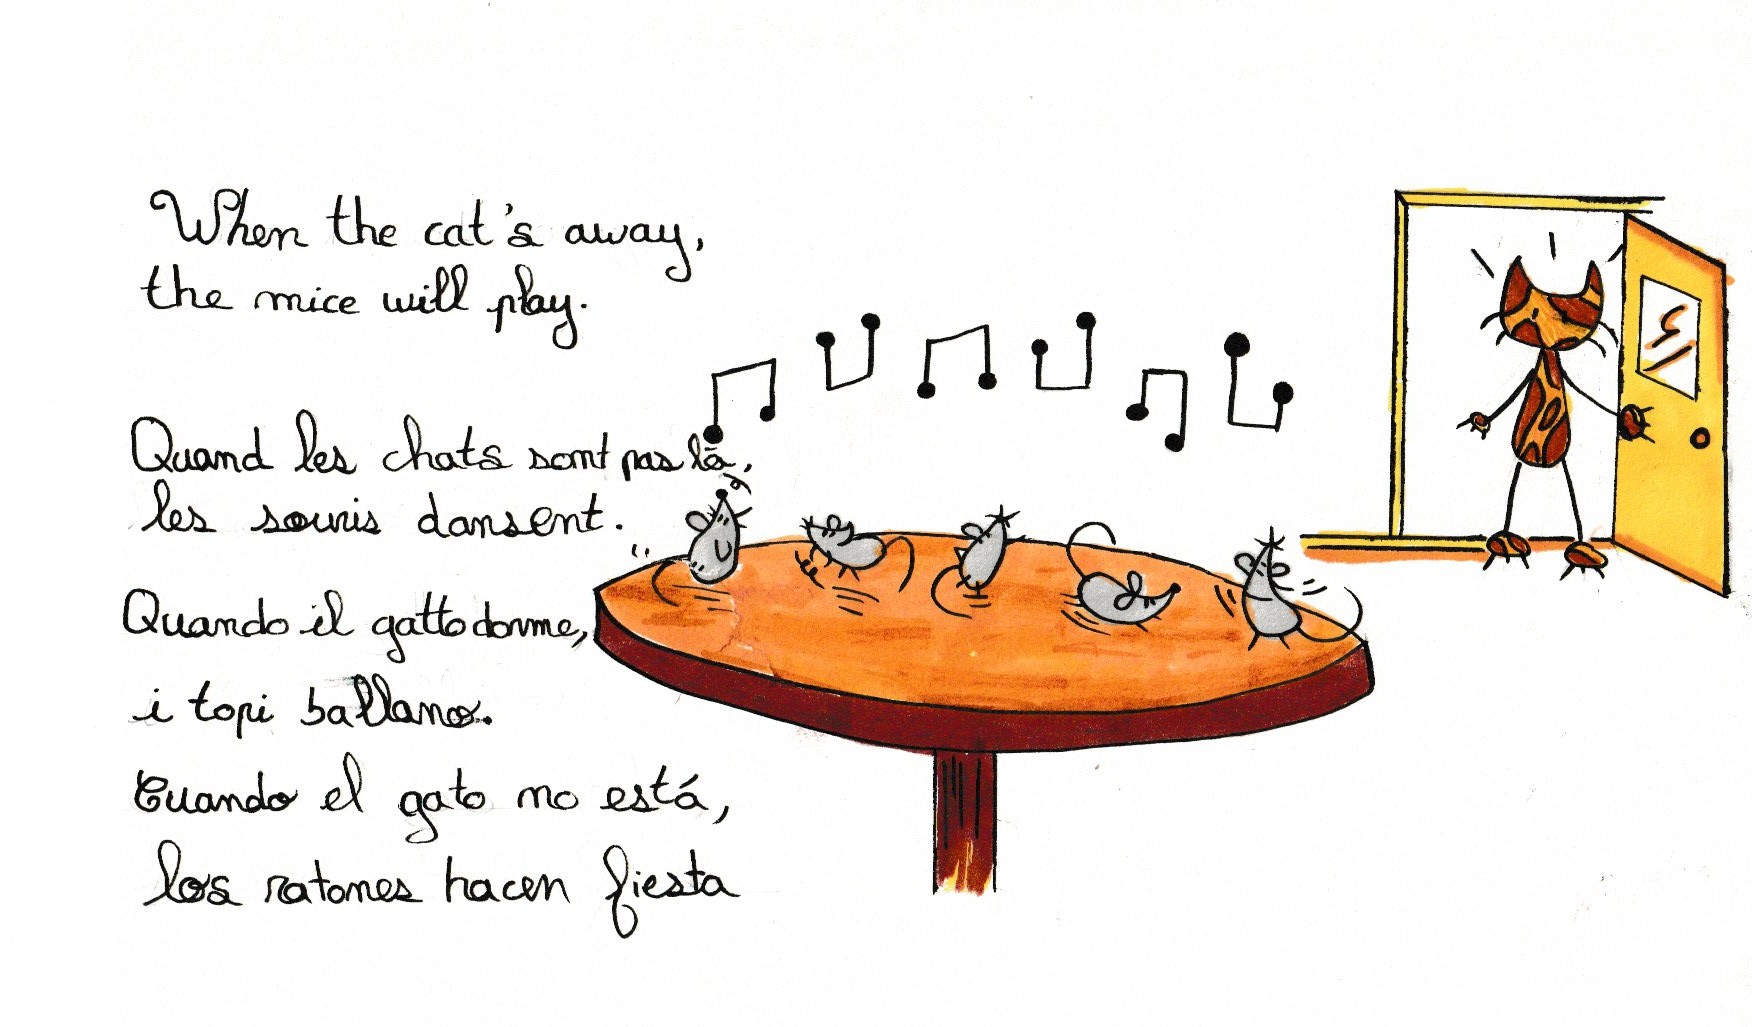 When the cat's away,
the mice will play.
Quand les chats sont pas là,
les souris dansent.
Quando il gatto dorme,
i topi ballano.
Cuando el gato no está,
los ratones hacen fiesta